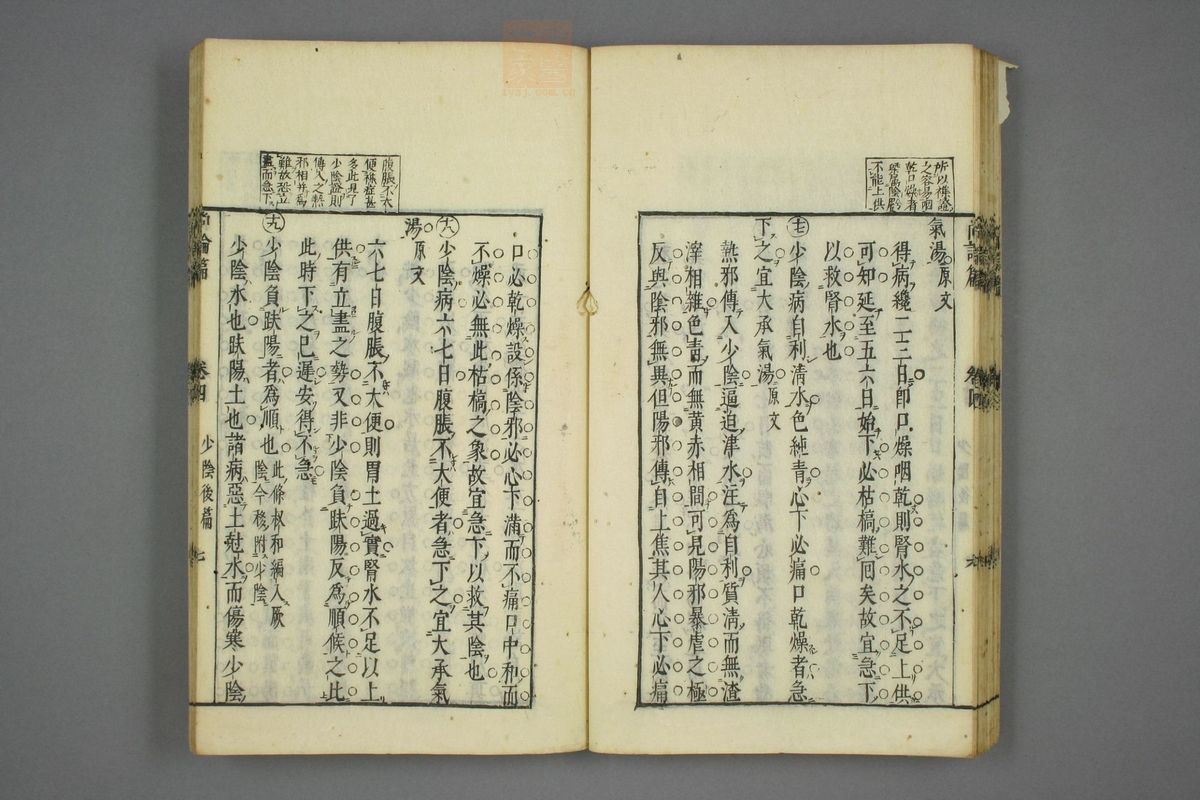 所以燥證
之容易咽
乾口燥者
不能上供
氣湯 原文
得病纔二三日即口燥咽乾則腎水之不足上供
可知延至五六日始下必枯槁難回矣故宜急下
以救腎水也
十七 少陰病自利清水色純青心下必痛口乾燥者急
下之宜大承氣湯 原文
熱邪傳入少陰逼迫津水注為自利質清而無渣
滓相雜色青而無黄赤相間可見陽邪暴虐之極
反與陰邪無異但陽邪傳自上焦其人心下必痛
口必乾燥設係陰邪必心下滿而不痛口中和而
不燥必無此枯槁之象故宜急下以救其陰也
十八 少陰病六七日腹脹不大便者急下之宜大承氣
湯 原文
腹脹不大
便燥症甚
多此見了
少陰證則
傳入之熱
邪相并為
難故恐立
盡而急下
六七日腹脹不大便則胃土過實腎水不足以上
供有立盡之勢又非少陰負趺陽反為順候之此
此時下之已遲安得不急
十九 少陰負趺陽者為順也 此條叔和編入厥
陰今移附少陰
少陰水也趺陽土也諸病惡土尅水而傷寒少陰
尚論篇 卷四 少陰後篇 七
尚論篇 卷四 六